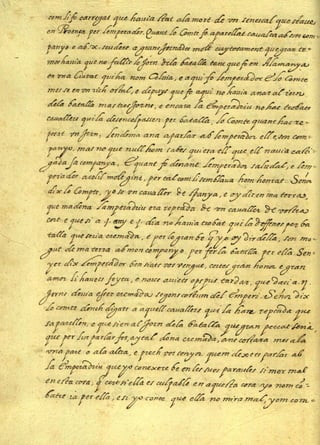 com li fo carregat que havia feta la mort de vn senescal que staue
en Proença per lemperador. Quant lo Comte fo aparellat caualca ab son com
panyo e ab .x. scuders a grans jornades molt cuytosament que gran te-
mor havia que no fallis lo jorn dela batalla tant que fo en Alamanya
en vna Ciutat qui ha nom Colonia, e aqui fo lemperador E lo Comte
mes se en vn rich ostal, e depuys que fo aqui no havia anar al jorn
dela batalla mas tres jorns, e encara la Emperadriu no hac trobat
cauallers qui la desenculpassen per batalla, lo Comte quant hac re-
posat vn jorn, lendema ana a parlar ab lemperador ell e son com-
panyo, mas no que null hom sabes qui era ell que ell nauia casti-
gada sa companya. E quant fo denant lemperador saludal, e lem-
perador acollil molt gint, per tal com li semblaua hom honrat. Senyor
dix lo Comte, yo so vn caualler de Spanya, e oy dir en ma terra,
que madona la emperadriu era reptada de vn caualler de vostra
cort e que si a .j. any e .j. dia no hauia trobat qui la deffenes per ba
talla que seria cremada, e per lo gran be q yo oy dir della, son mo-
gut de ma terra ab mon companyo per fer la batalla per ella Sen-
yer dix lemperador ben siats vos vengut, certes gran honor e gran
amor li haueu feyta, e nous cuiets o pus poguets tardar, que daci a .ij.
jorns deuia esser cremada segons costum del Emperi. Senyor dix
lo comte donchs digats a aquell cauallers qui la han reptada que
saparellen, e que sien al jorn dela batalla que gran peccat seria
que per lur parlar fos aytal dona cremada, ans costara mes a la
vna part o a la altra, e prech vos senyor quem dexets parlar ab
la Emperadriu que yo conexere be en les sues paraules si mor mal
en esta cosa, e cor si ella es culpable en aquesta cosa yo nom co-
batre ia per ella, e si yo conec que ella no mira mal, yom com-